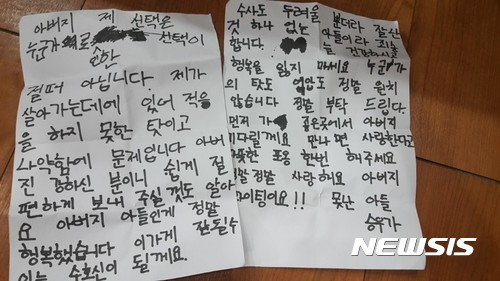 아버지 제 선택은
누군가 로 선택이
절대 아닙니다. 제가
살아가는데에 있어 적응
을 하지 못한 탓이고
나약함에 문제입니다 아버
진 강하신 분이니 쉽게 절
편하게 보내 주실 것도 알아
요 아버지 아들인게 정말
행복했습니다
수호신이 될게요.
수사도 두려울
것 하나 없는 아들이라
합니다. 늘 건강하시고
행복을 잃지 마세요 누군가
의 탓도 정말 원치
않습니다 정말 부탁 드립니다.
먼저 가 좋은곳에서 아버지
기다릴께요 만나면 사랑한다고
포옹 한번 해주세요
정말 정말 사랑해요 아버지
화이팅이요!! 못난 아들
승우가
NEWSIS